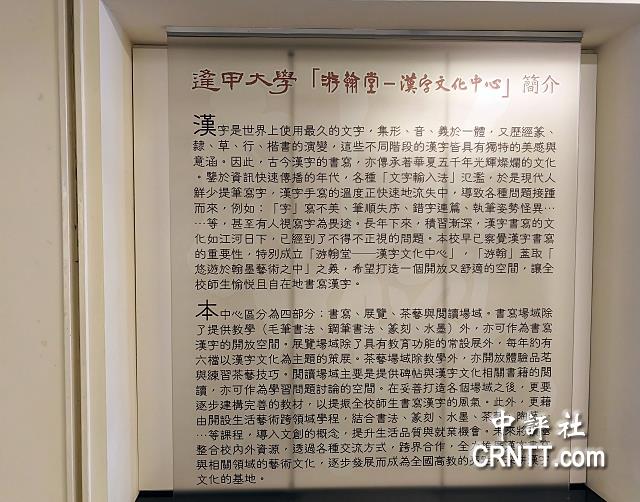 逢甲大學「游翰堂－漢字文化中心」簡介
漢字是世界上使用最久的文字，集形、音、義於一體，又歷經篆、
隸、草、行、楷書的演變，這些不同階段的漢字皆具有獨特的美感與
意涵。因此，古今漢字的書寫，亦傳承著華夏五千年光輝燦爛的文化
。鑒於資訊快速傳播的年代，各種「文字輸入法」氾濫，於是現代人
鮮少提筆寫字，漢字手寫的溫度正快速地流失中，導致各種問題接踵
而來，例如：「字」寫不美、筆順失序、錯字連篇、執筆姿勢怪異…
…等，甚至有人視寫字為畏途。長年下來，積習漸深，漢字書寫的文
化如江河日下，已經到了不得不正視的問題。本校早已察覺漢字書寫
的重要性，特別成立「游翰堂──漢字文化中心」，「游翰」蓋取「
悠遊於翰墨藝術之中」之義，希望打造一個開放又舒適的空間，讓全
校師生愉悅且自在地書寫漢字。
本中心區分為四部分：書寫、展覽、茶藝與閱讀場域。書寫場域除
了提供教學（毛筆書法、鋼筆書法、篆刻、水墨）外，亦可作為書寫
漢字的開放空間。展覽場域除了具有教育功能的常設展外，每年約有
六檔以漢字文化為主題的策展。茶藝場域除教學外，亦開放體驗品茗
與練習茶藝技巧。閱讀場域主要是提供碑帖與漢字文化相關書籍的閱
讀，亦可作為學習問題討論的空間。在妥善打造各個場域之後，更要
逐步建構完善的教材，以提振全校師生書寫漢字的風氣。此外，更藉
由開設生活藝術跨領域學程，結合書法、篆刻、水墨、茶
…等課程，導入文創的概念，提升生活品質與就業機會。未來將
整合校內外資源，透過各種交流方式，跨界合作，全
與相關領域的藝術文化，逐步發展而成為全國高教的
文化的基地。
中評社
CRNTT.com